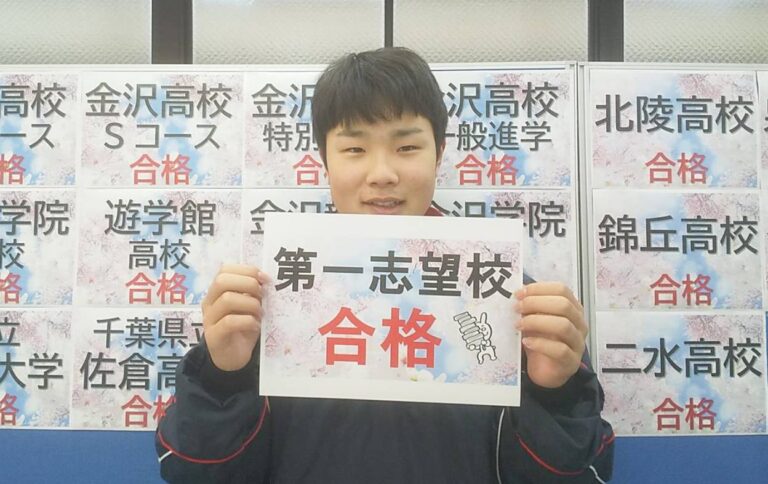 高校
ース
合格
金沢高校
Sコース
合格
金沢
特別
合格
沢高校
一般進学
合格
北陵高校
合格
学院
校
合格
遊学館
高校
合格
金沢
金沢学院
錦丘高校
合格
立
大学
合格
千葉県立
佐倉高
合格
二水高校
合格
第一志望校
合格